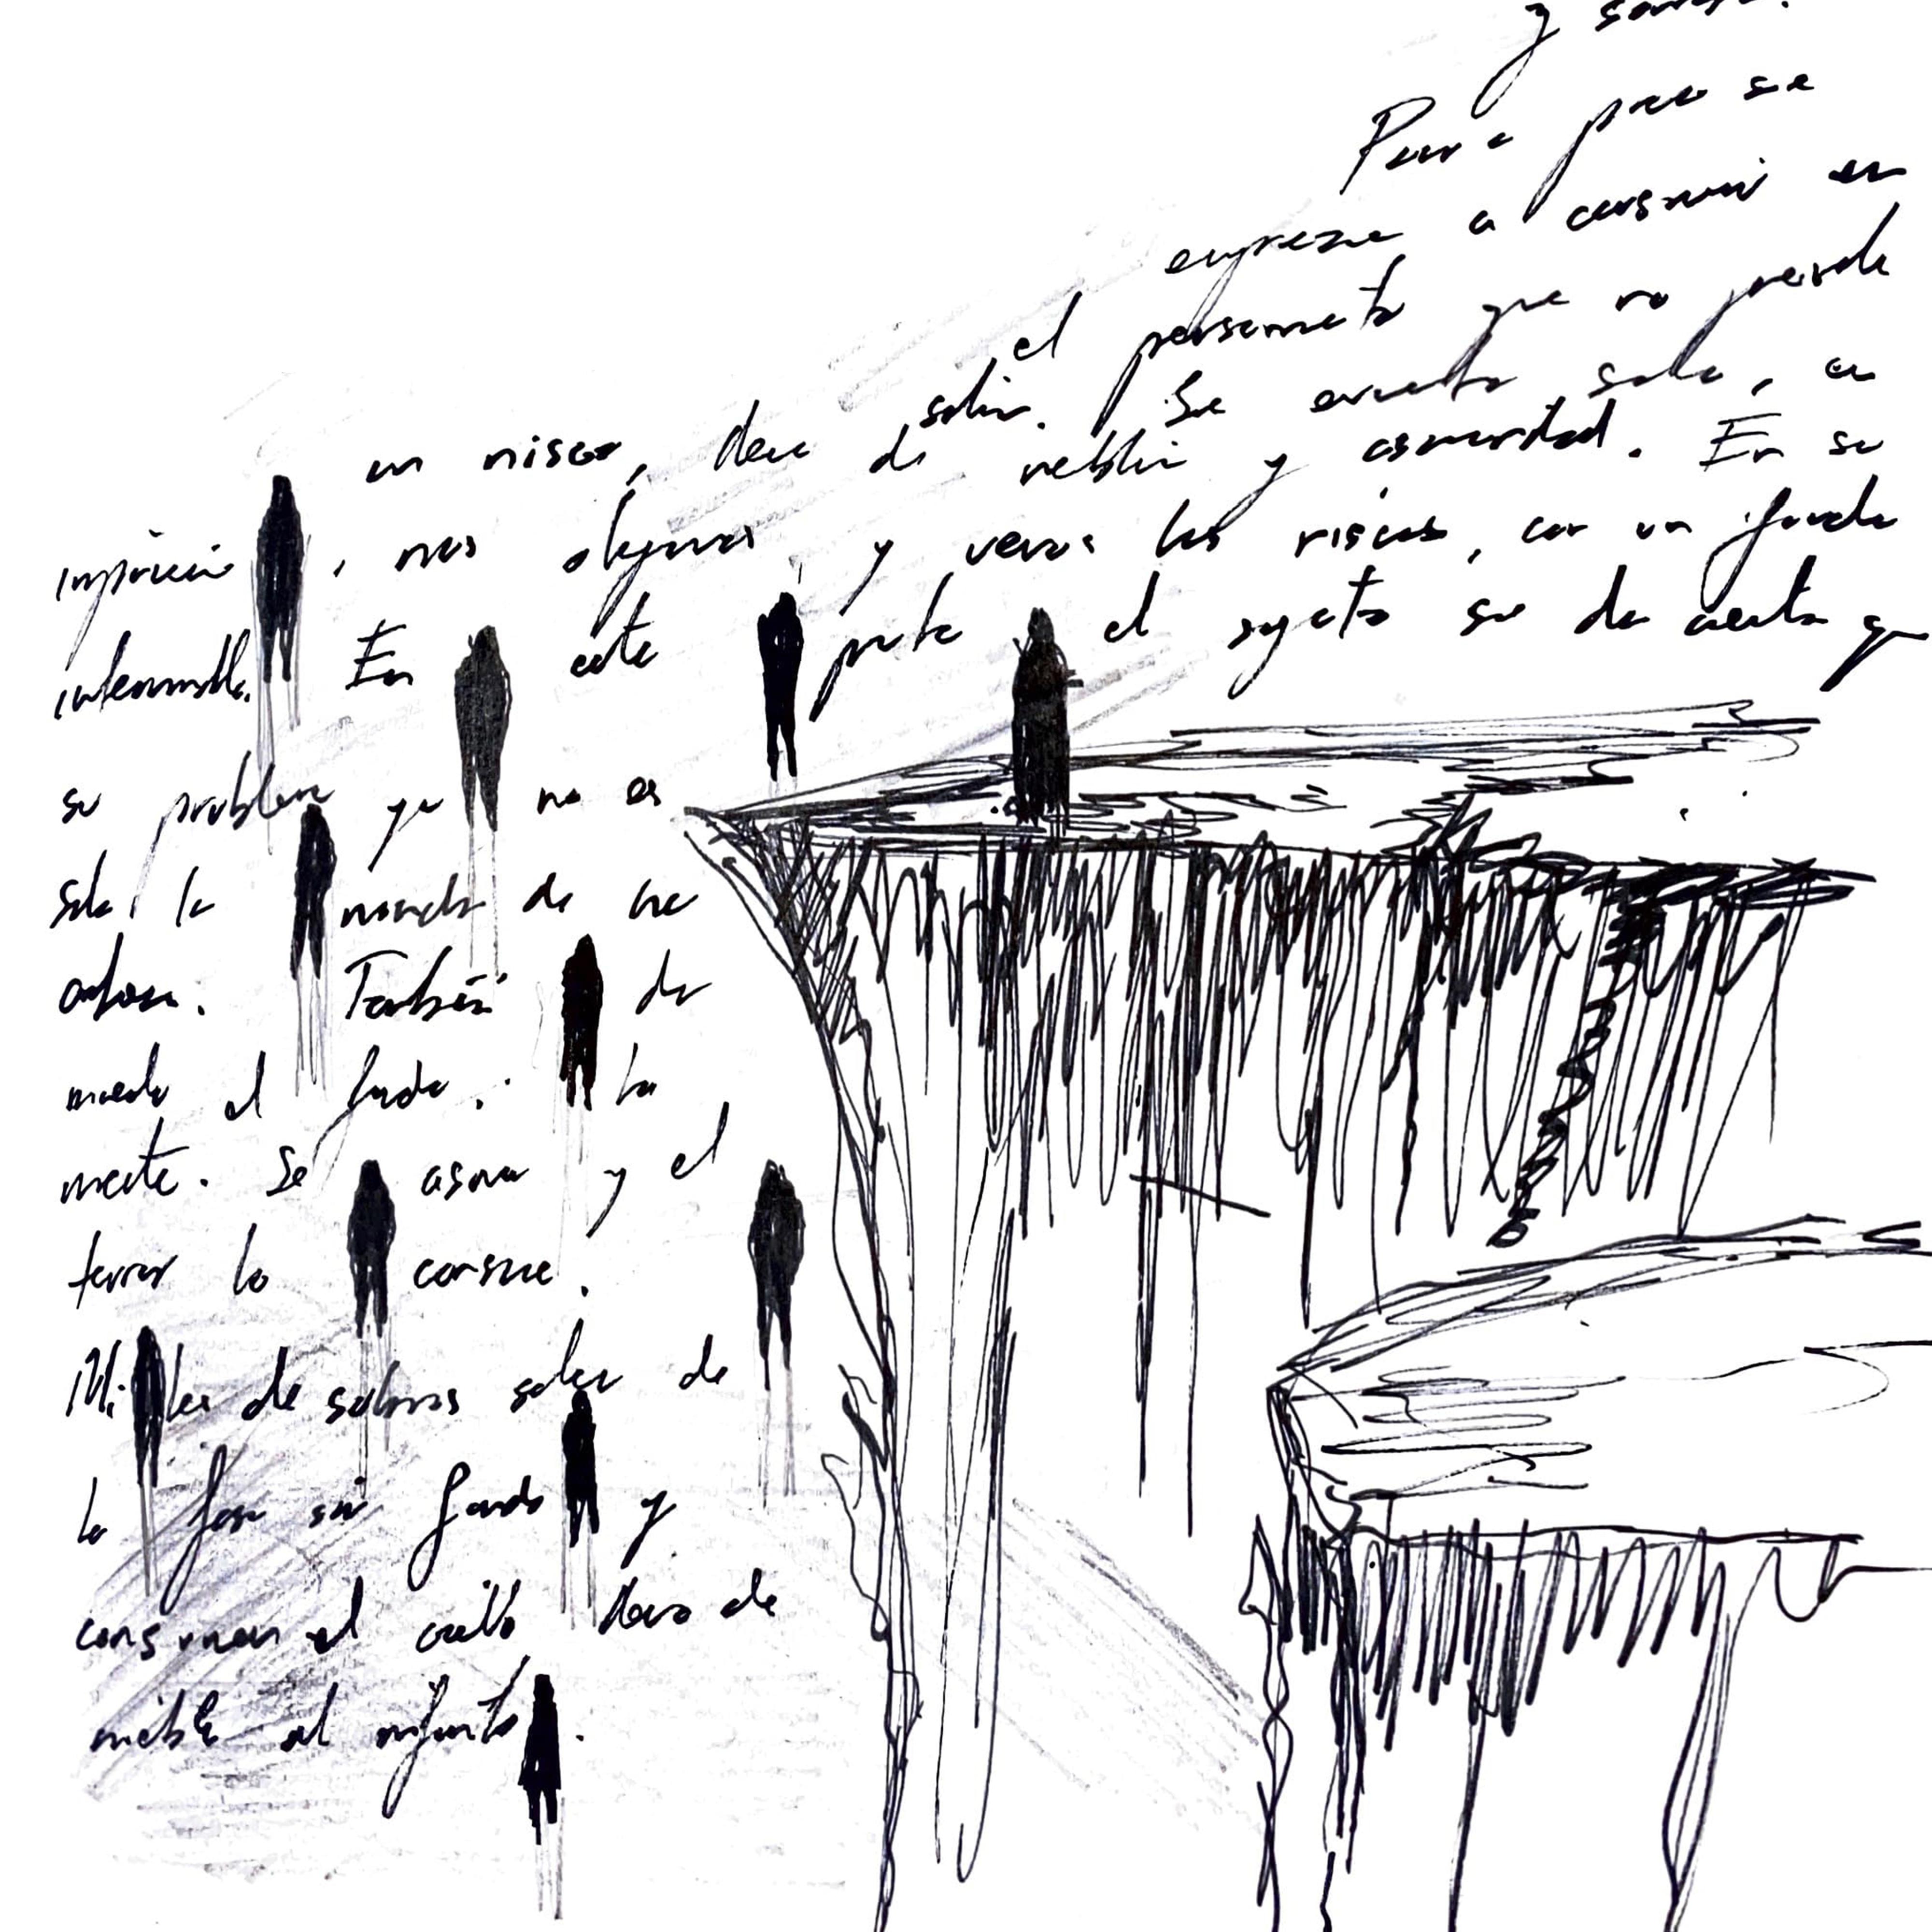 y
Poco a poco se
empieza a consumir en
el pensamiento que no puede
salir. Se encuentra solo, en
un risco, lleno de neblina y oscuridad. En su
, nos alejamos y vemos los riscos, con un fondo
interminable. En este punto el sujeto se da cuenta que
su problema ya no es
solo la manada de
También da
miedo el fondo. La
muerte. Se asoma y el
terror lo consume.
Miles de sombras salen de
la fosa sin fondo y
consumen el cielo lleno de
niebla al infinito.